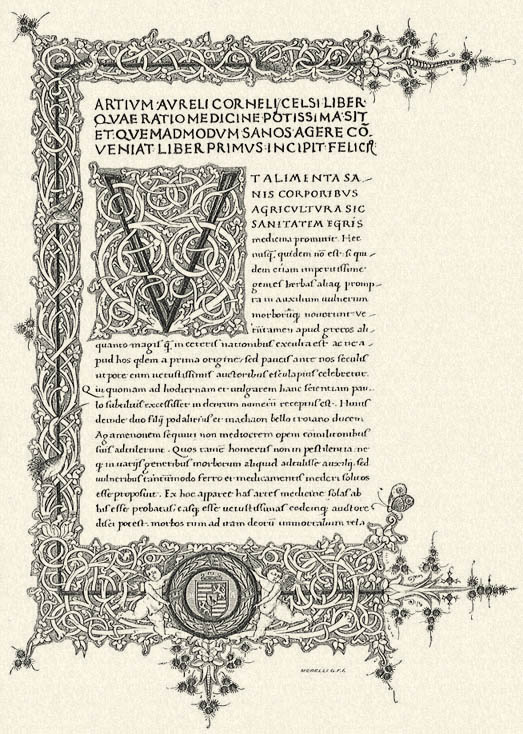 ARTIVM·AVRELI CORNELI/CELSI LIBER·
QVAE RATIO MEDICINE·POTISSIMA·SIT
ET·QVEMADMODVM SANOS·AGERE CŌ
VENIAT·LIBER PRIMVS·INCIPIT·FELICIT
V
T ALIMENTA SA
NIS CORPORIBVS
AGRICVLTVRA SIC
SANITATEM EGRIS
medicina promittit. Hec
nusq̃ quidem nō est. si qui
dem etiam imperitissime
gentes herbas aliaq. promp
ta in auxilium uulnerum
morborūq. nouerunt. ue
rūtamen apud grecos ali
quanto magis q̃ in ceteris nationibus exculta est. ac ne a
pud hos qdem a prima origine. sed paucis ante nos seculis
ut pote cum uetustissimus auctoribus esculapius celebretur.
Qui quoniam ad hodiernam et uulgarem hanc scientiam pau
lo subtilius excessisset in deorum numerū receptus est. Huius
deinde duo filij podalirius et machaon bello troiano ducem
Agamenonem sequuti non mediocrem opem comilitonibus
suis adtulerunt. Quos tamē homerus non in pestilentia. ne
q in uarijs generibus morborum aliquid adtulisse auxilij. sed
uulneribus tantūmodo ferro et medicamentis mederi solitos
esse proposuit. Ex hoc apparet has artes medicine solas ab
his esse probatas. easq. esse uetustissimas eodemq. auctore
disci potest. morbos tum ad iram deorū immortalium rela
MORELLI G.F.F.